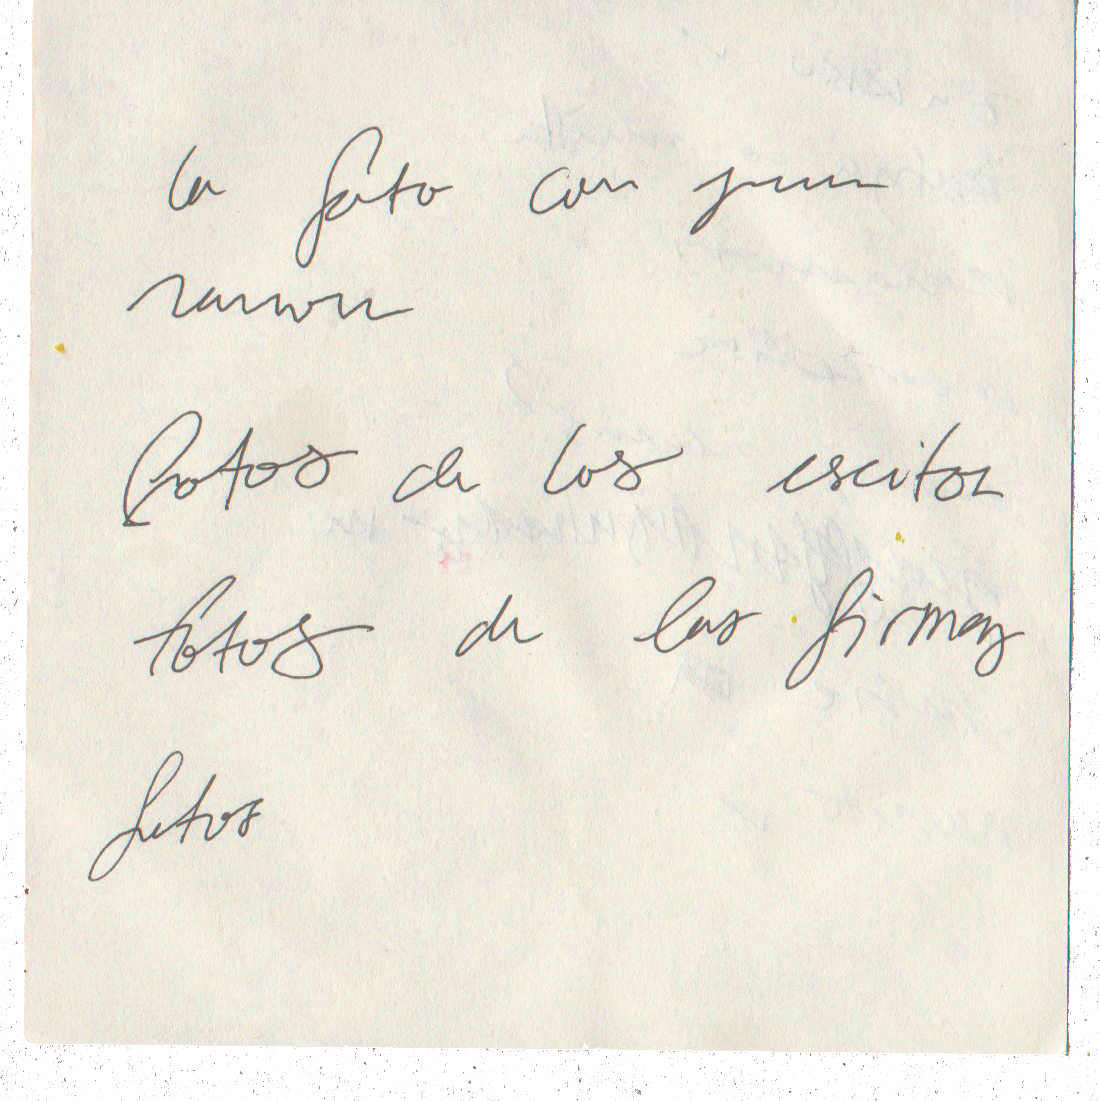 la foto con juan
ramon
fotos de los escitor
fotos de las firmas
fotos